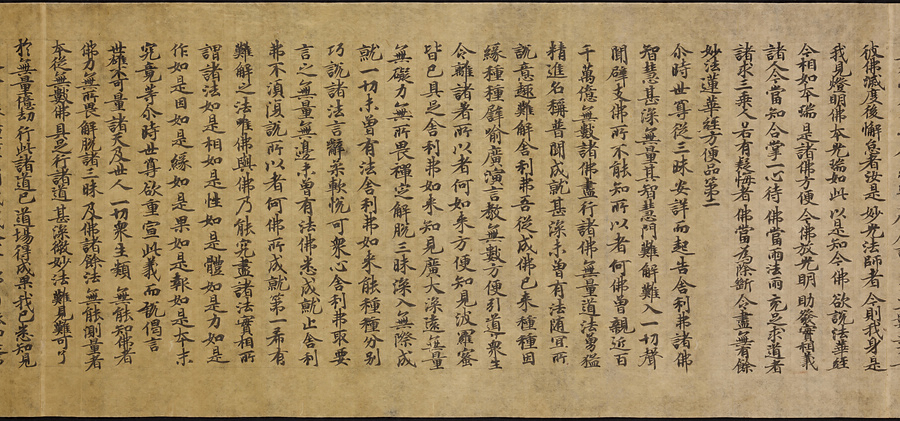 彼佛滅度後懈怠者汝是 妙光法師者 今則我身是
我見燈明佛 本光瑞如此 以是知今佛 欲說法華經
今相如本瑞 是諸佛方便 今佛放光明 助發實相義
諸人今當知 合掌一心待 佛當雨法雨 充足求道者
諸求三乘人 若有疑悔者 佛當為除斷 令盡無有餘
妙法蓮華經方便品第二
尒時世尊從三昧安詳而起告舍利弗諸佛
智慧甚深無量其智慧門難解難入一切聲
聞辟支佛所不能知所以者何佛曾親近百
千萬億無數諸佛盡行諸佛無量道法勇猛
精進名稱普聞成就甚深未曾有法隨宜所
說意趣難解舍利弗吾從成佛已來種種因
緣種種譬喻廣演言教無數方便引道衆生
令離諸著所以者何如來方便知見波羅蜜
皆已具足舍利弗如來知見廣大深遠無量
無礙力無所畏禪定解脫三昧深入無際成
就一切未曾有法舍利弗如來能種種分別
巧說諸法言辭柔軟悅可衆心舍利弗取要
言之無量無邊未曾有法佛悉成就止舍利
弗不須復說所以者何佛所成就第一希有
難解之法唯佛與佛乃能究盡諸法實相所
謂諸法如是相如是性如是體如是力如是
作如是因如是緣如是果如是報如是本末
究竟等尒時世尊欲重宣此義而說偈言
世雄不可量 諸天及世人 一切衆生類 無能知佛者
佛力無所畏 解脫諸三昧 及佛諸餘法 無能測量者
本從無數佛 具足行諸道 甚深微妙法 難見難可了
於無量億劫 行此諸道已 道場得成果 我已悉知見